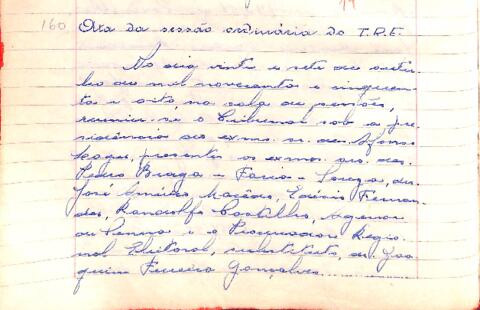 160 Ata da sessão ordinária do T.R.E.
No dia vinte e sete de outu-
bro de mil novecentos e cinquen-
ta e oito, na sala de sessões,
reuniu-se o Tribunal sob a pre-
sidência do exmo. sr. des. Afonso
Lages, presentes os exmos. srs. des.
Pedro Braga - Faria e Souza, drs.
José Américo Macêdo, Edésio Fernan-
des, Randolfo Castilho, Agenor
de Senna e o Procurador Regio-
nal Eleitoral, substituto, dr. Joa-
quim Ferreira Gonçalves.